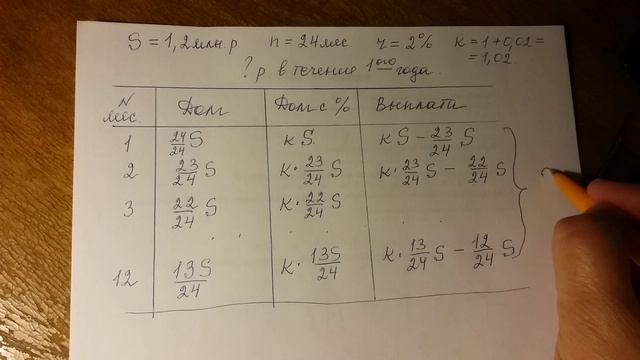 S = 1,2 млн. р n = 24 мес. r = 2% k = 1 + 0,02 =
= 1,02
? р в течение 1ого года.
N мес Долг Долг с % Выплата
1 24/24 S k S k S - 23/24 S
2 23/24 S k · 23/24 S k · 23/24 S - 22/24 S
3 22/24 S k · 22/24 S
. . . . . .
12 13S/24 k · 13S/24 k · 13/24 S - 12/24 S